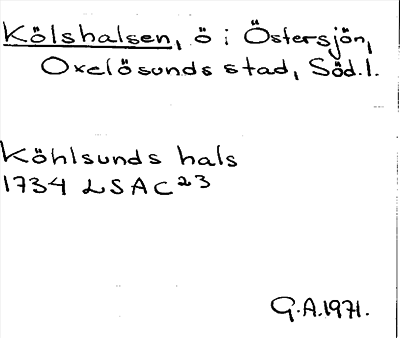 Kölshalsen, ö i Östersjön,
Oxelösunds stad, Söd.l.
Köhlsunds hals
1734 LSA C23
G.A.1971.